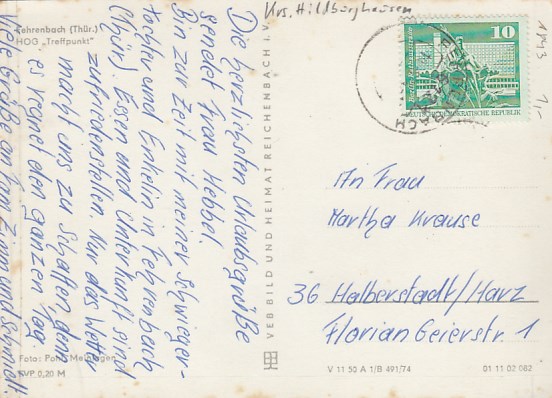 Krs. Hildburghausen
Fehrenbach (Thür.)
HOG „Treffpunkt"
Die herzlichsten Urlaubsgrüße
sendet Frau Hebbel.
Bin zur Zeit mit meiner Schwieger-
tochter und Enkelin in Fehrenbach
(Thür). Essen und Unterkunft sind
zufriedenstellen. Nur das Wetter
macht uns zu schaffen, denn
es regnet den ganzen Tag.
Viele Grüße an Fam. Zimm und Schmidt.
Foto: Pohl, Meiningen
EVP 0,20 M
VEB BILD UND HEIMAT REICHENBACH I. V.
10
Berlin, Rathausstraße
DEUTSCHE DEMOKRATISCHE REPUBLIK
1,-
An Frau
Martha Krause
36 Halberstadt/Harz
Florian Geierstr. 1
V 11 50 A 1/B 491/74
01 11 02 082